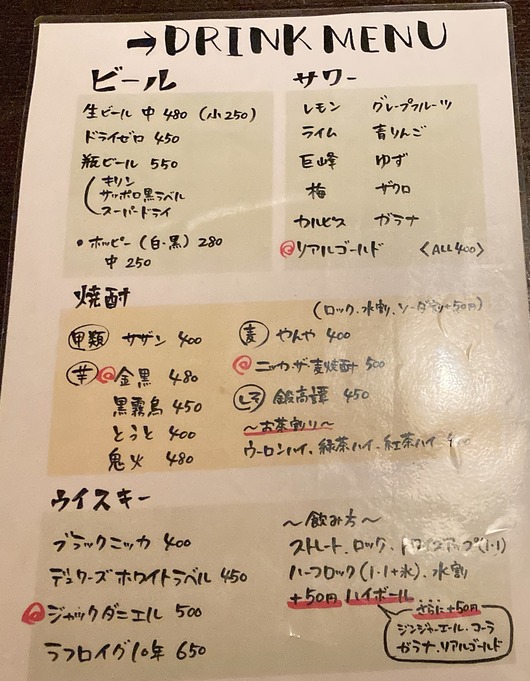 →DRINK MENU
ビール
生ビール 中 480 (小 250)
ドライゼロ 450
瓶ビール 550
キリン
サッポロ黒ラベル
スーパードライ
・ホッピー (白・黒) 280
中 250
サワー
レモン グレープフルーツ
ライム 青りんご
巨峰 ゆず
梅 ザクロ
カルピス ガラナ
リアルゴールド 〈ALL400〉
焼酎
(ロック、水割、ソーダ割+50円)
甲類 サザン 400
芋 金黒 480
黒霧島 450
とうと 400
鬼火 480
麦 やんや 400
ニッカ ザ・麦焼酎 500
しそ 鍛高譚 450
〜お茶割り〜
ウーロンハイ、緑茶ハイ、紅茶ハイ
ウイスキー
ブラックニッカ 400
デュワーズ ホワイトラベル 450
ジャックダニエル 500
ラフロイグ10年 650
〜飲み方〜
ストレート、ロック、トワイスアップ(1:1)
ハーフロック(1:1+氷)、水割
+50円 ハイボール
さらに+50円
ジンジャーエール、コーラ
ガラナ、リアルゴールド